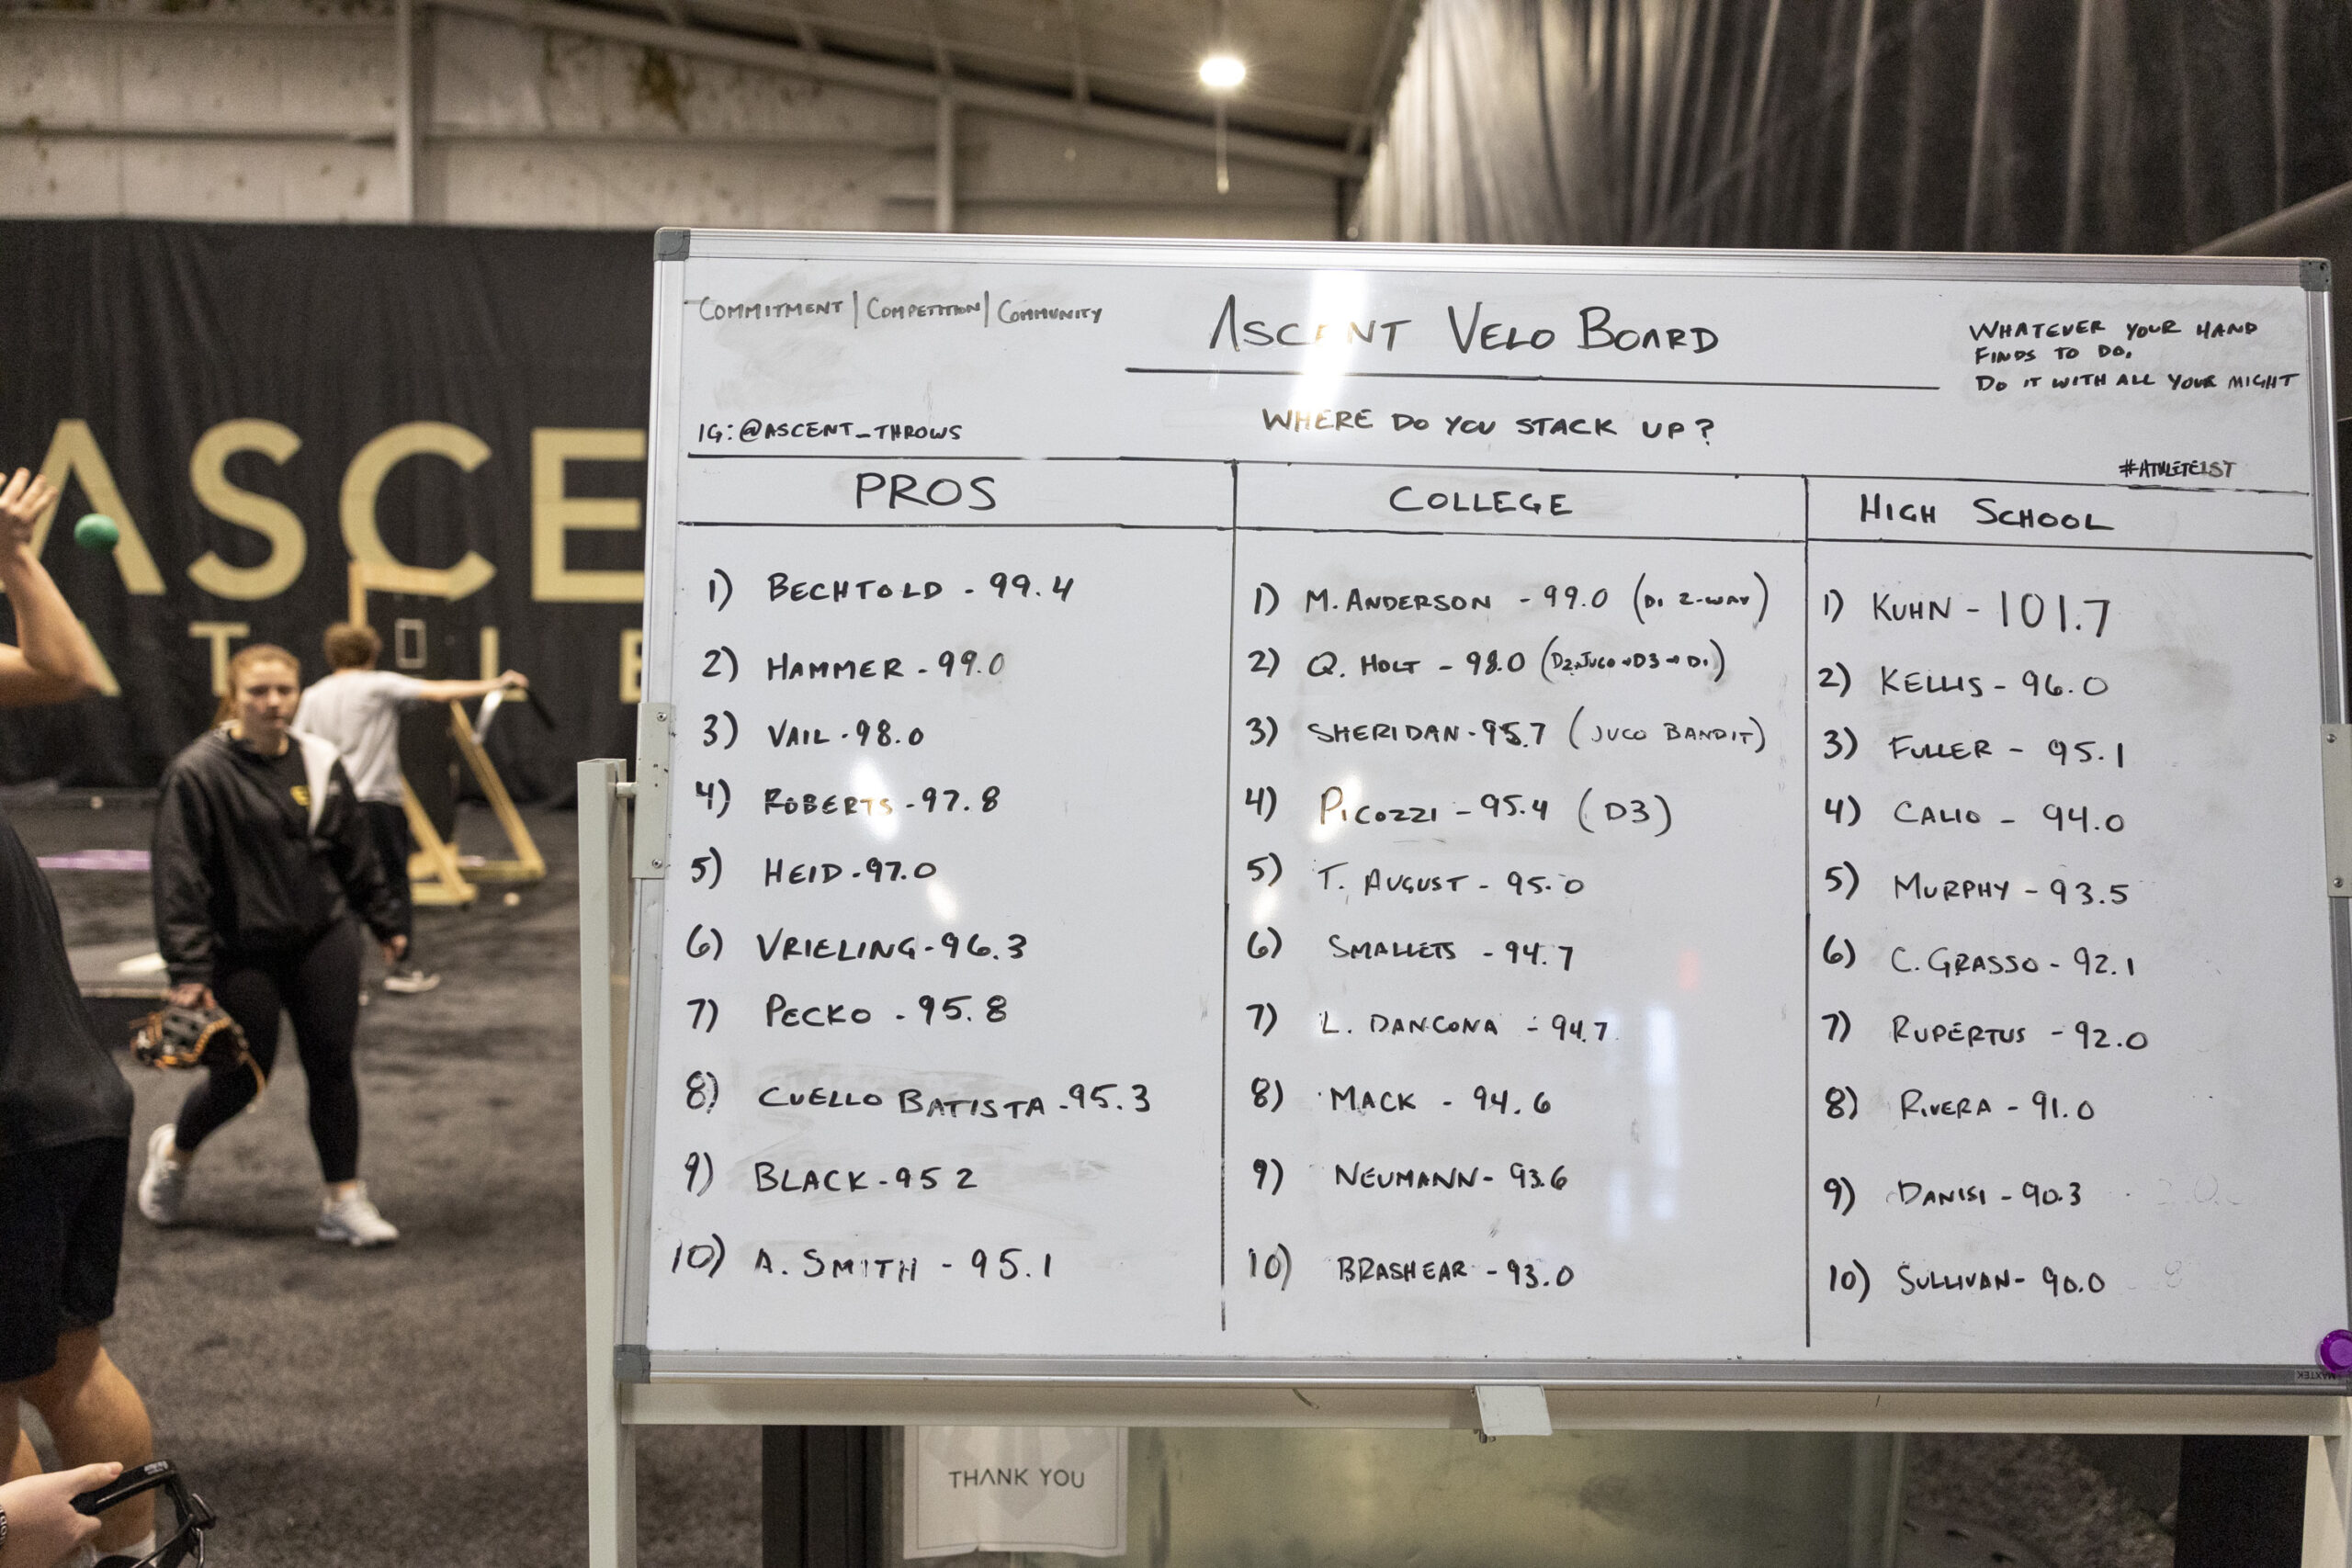 ASCE
AT LE
COMMITMENT | COMPETITION | COMMUNITY
ASCENT VELO BOARD
WHATEVER YOUR HAND
FINDS TO DO,
DO IT WITH ALL YOUR MIGHT
IG: @ASCENT_THROWS
WHERE DO YOU STACK UP?
#ATHLETE1ST
PROS
1) BECHTOLD - 99.4
2) HAMMER - 99.0
3) VAIL - 98.0
4) ROBERTS - 97.8
5) HEID - 97.0
6) VRIELING - 96.3
7) PECKO - 95.8
8) CUELLO BATISTA - 95.3
9) BLACK - 95 2
10) A. SMITH - 95.1
COLLEGE
1) M. ANDERSON - 99.0 (D1 2-WAY)
2) Q. HOLT - 98.0 (D2→JUCO→D3→D1)
3) SHERIDAN - 95.7 (JUCO BANDIT)
4) PICOZZI - 95.4 (D3)
5) T. AUGUST - 95.0
6) SMALLETS - 94.7
7) L. DANCONA - 94.7
8) MACK - 94.6
9) NEUMANN - 93.6
10) BRASHEAR - 93.0
HIGH SCHOOL
1) KUHN - 101.7
2) KELLIS - 96.0
3) FULLER - 95.1
4) CALIO - 94.0
5) MURPHY - 93.5
6) C. GRASSO - 92.1
7) RUPERTUS - 92.0
8) RIVERA - 91.0
9) DANISI - 90.3
10) SULLIVAN - 90.0
MAXTEK
THANK YOU